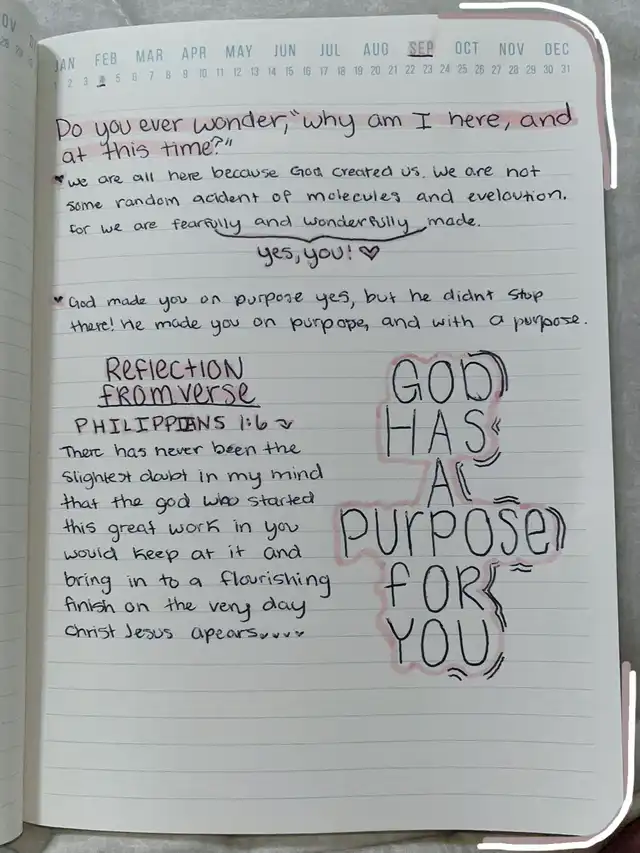 OV
JAN FEB MAR APR MAY JUN JUL AUG SEP OCT NOV DEC
1 2 3 4 5 6 7 8 9 10 11 12 13 14 15 16 17 18 19 20 21 22 23 24 25 26 27 28 29 30 31
Do you ever wonder, "why am I here, and
at this time?"
we are all here because God created us. We are not
some random acident of molecules and eveloution.
for we are fearfully and wonderfully made.
yes, you!
God made you on purpose yes, but he didnt stop
there! He made you on purpope, and with a purpose.
Reflection
from verse
PHILIPPIANS 1:6
There has never been the
slightest doubt in my mind
that the god who started
this great work in you
would keep at it and
bring in to a flourishing
finish on the very day
christ Jesus apears
GOD
HAS
A
PURPOSE
FOR
YOU